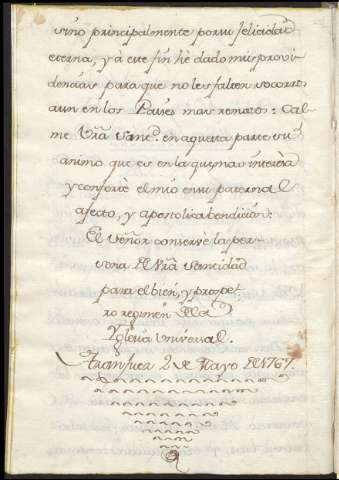 sino principalmente por su felicidad
eterna, y à este fin hè dado mis provi-
dencias para que no les falten socorros
aun en los Paises mas remotos: Cal-
me Vrã Sanc.d en aquesta parte su
animo que es en la que mas interesa
y conforte el mio con su paternal
afecto, y apostolica bendicion:
El Señor conserve la per-
sona de Vrã Santidad
para el bien, y prospe-
ro regimen de la
Yglesia Universal.
Aranjuez 2 de Mayo de 1767.